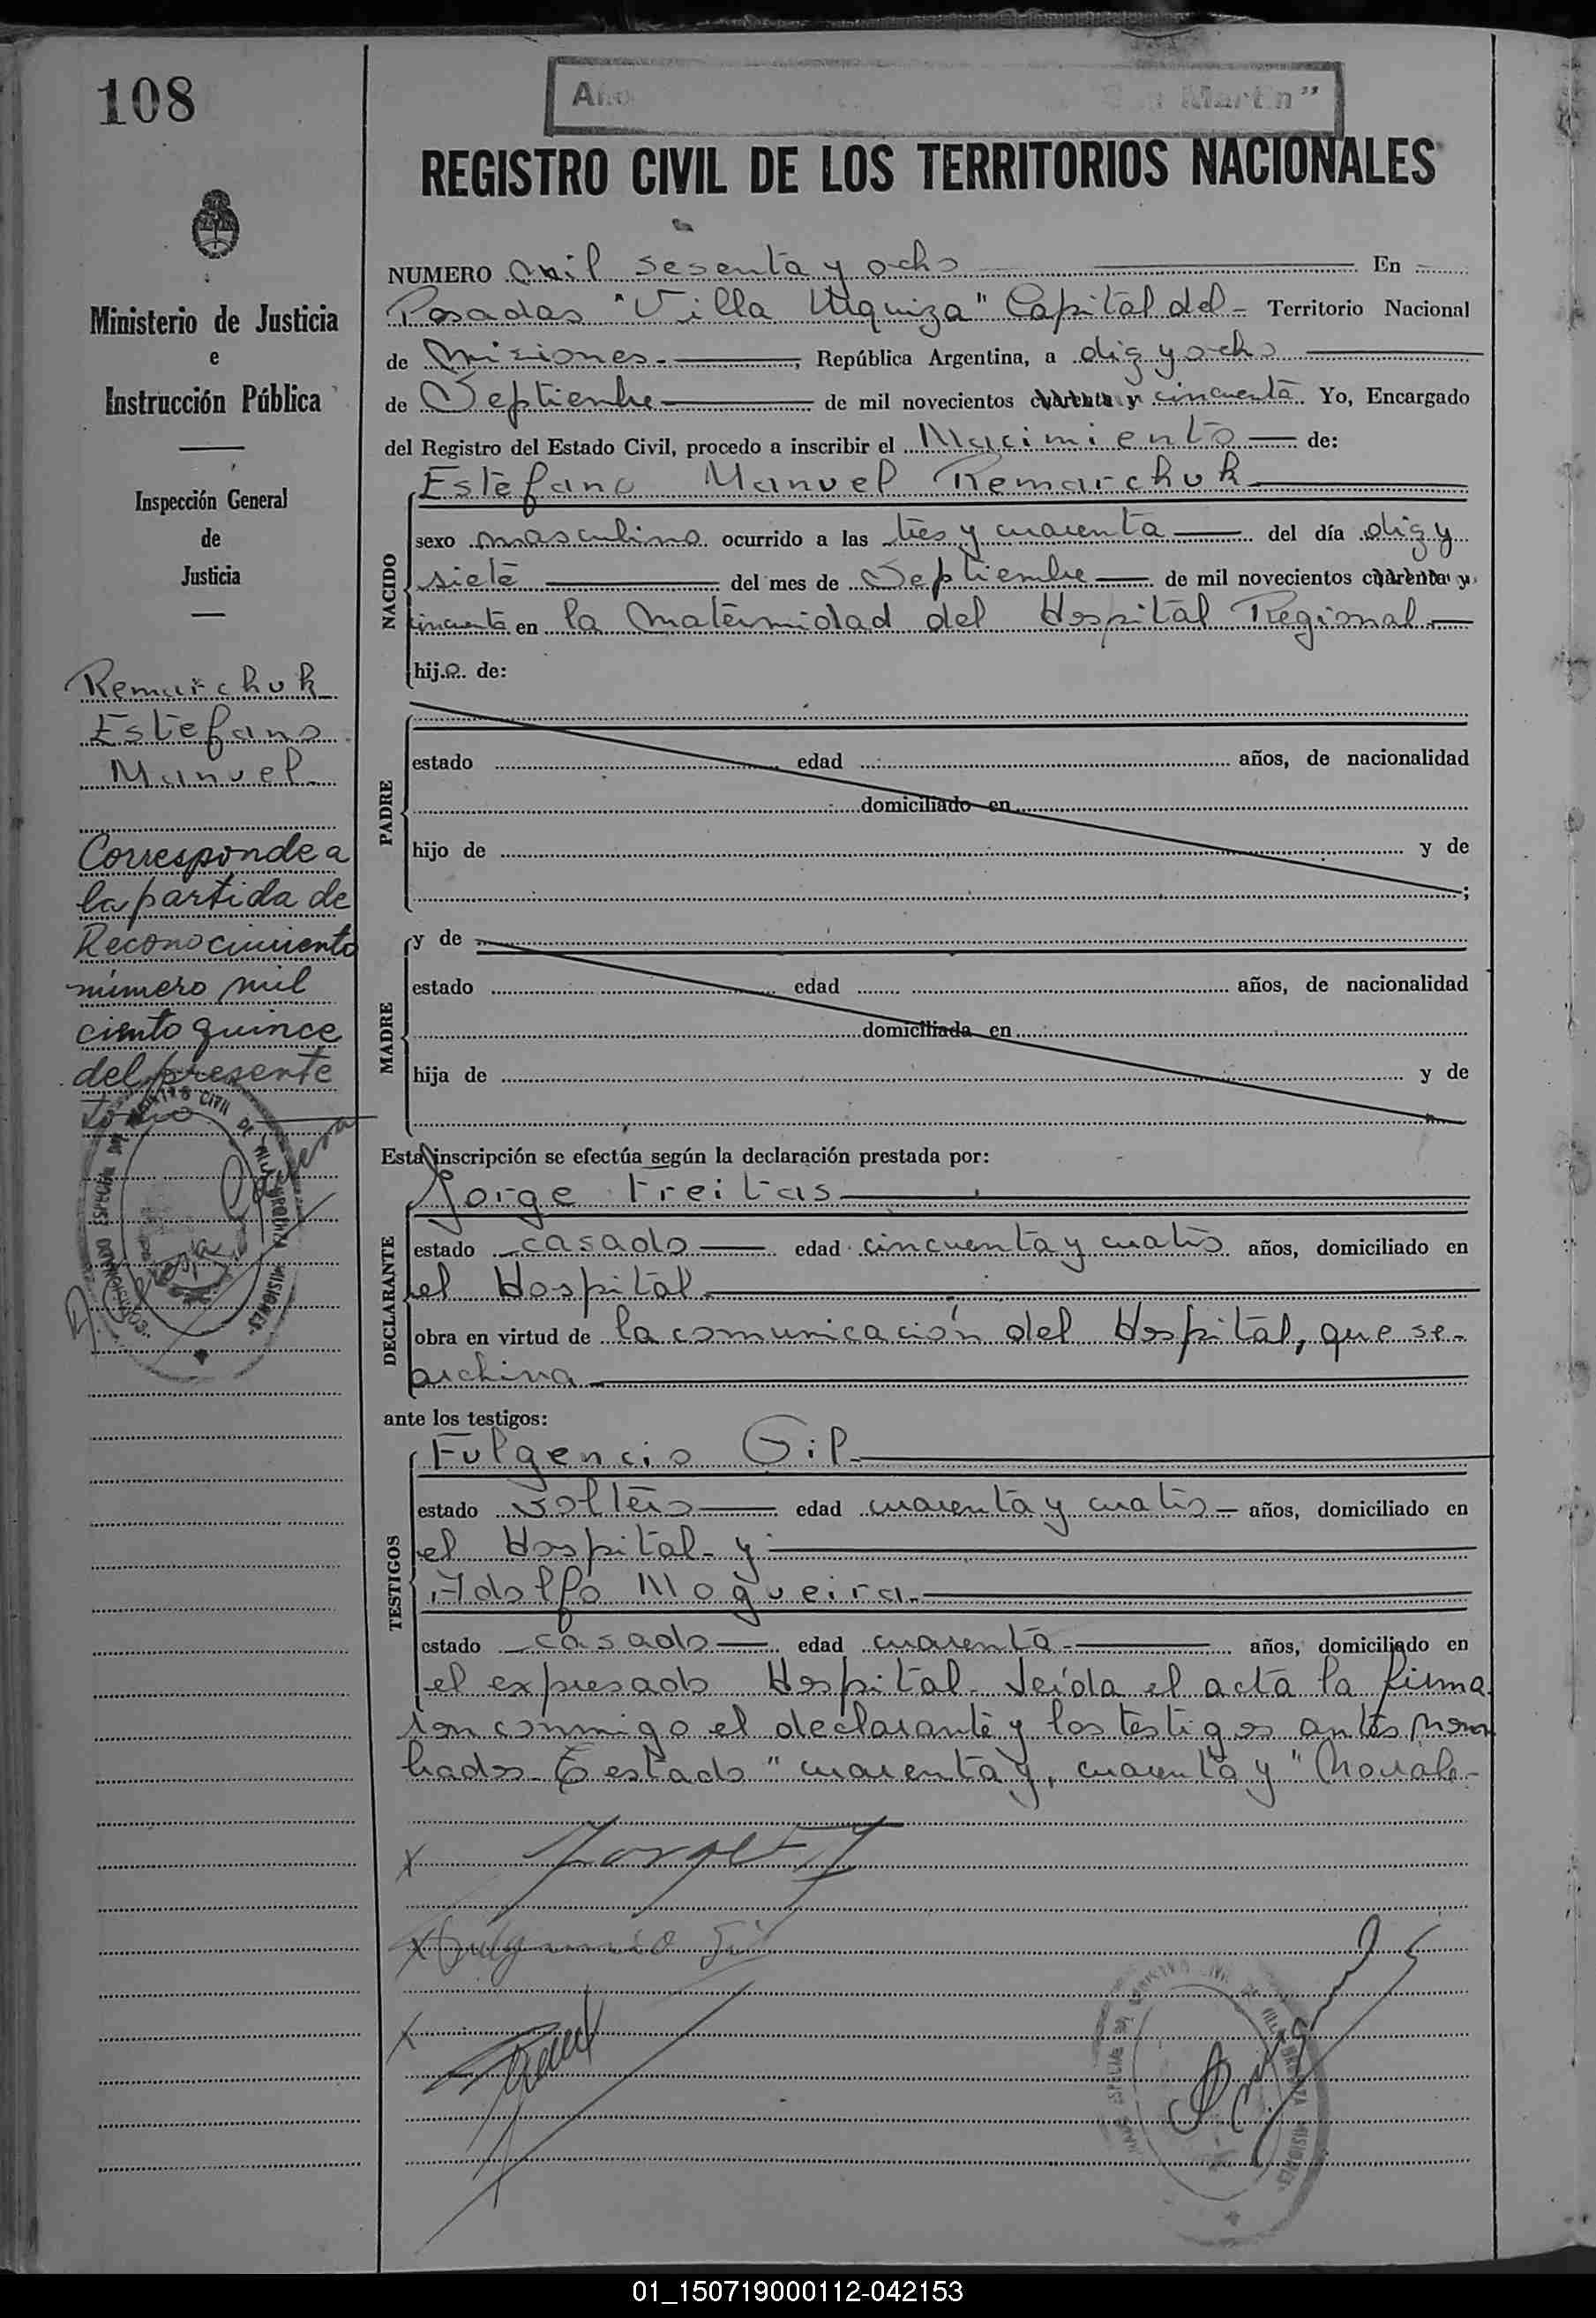 108
Año San Martín"
REGISTRO CIVIL DE LOS TERRITORIOS NACIONALES
Ministerio de Justicia
e
Instrucción Pública
Inspección General
de
Justicia
Remarchuk
Estefano
Manuel
Corresponde a
la partida de
Reconocimiento
número mil
ciento quince
del presente
tomo
NUMERO mil sesenta y ocho En
Posadas "Villa Urquiza" Capital del Territorio Nacional
de Misiones, República Argentina, a diez y ocho
de Septiembre de mil novecientos cuarenta y cincuenta Yo, Encargado
del Registro del Estado Civil, procedo a inscribir el Nacimiento de:
Estefano Manuel Remarchuk
NACIDO
sexo masculino ocurrido a las tres y cuarenta del día diez y
siete del mes de Septiembre de mil novecientos cuarenta y
cincuenta en la Maternidad del Hospital Regional
hijo de:
PADRE
estado edad años, de nacionalidad
domiciliado en
hijo de y de
;
MADRE
y de
estado edad años, de nacionalidad
domiciliada en
hija de y de
Esta inscripción se efectúa según la declaración prestada por:
Jorge Freitas
DECLARANTE
estado casado edad cincuenta y cuatro años, domiciliado en
el Hospital
obra en virtud de la comunicación del Hospital, que se
archiva
ante los testigos:
Fulgencio Gil
TESTIGOS
estado soltero edad cuarenta y cuatro años, domiciliado en
el Hospital y
Adolfo Nogueira
estado casado edad cuarenta años, domiciliado en
el expresado Hospital. Leída el acta la firma
ron conmigo el declarante y los testigos antes nom
brados. Testado "cuarenta y, cuarenta y" No vale
x Jorge F
x Fulgencio Gil
x
01_150719000112-042153